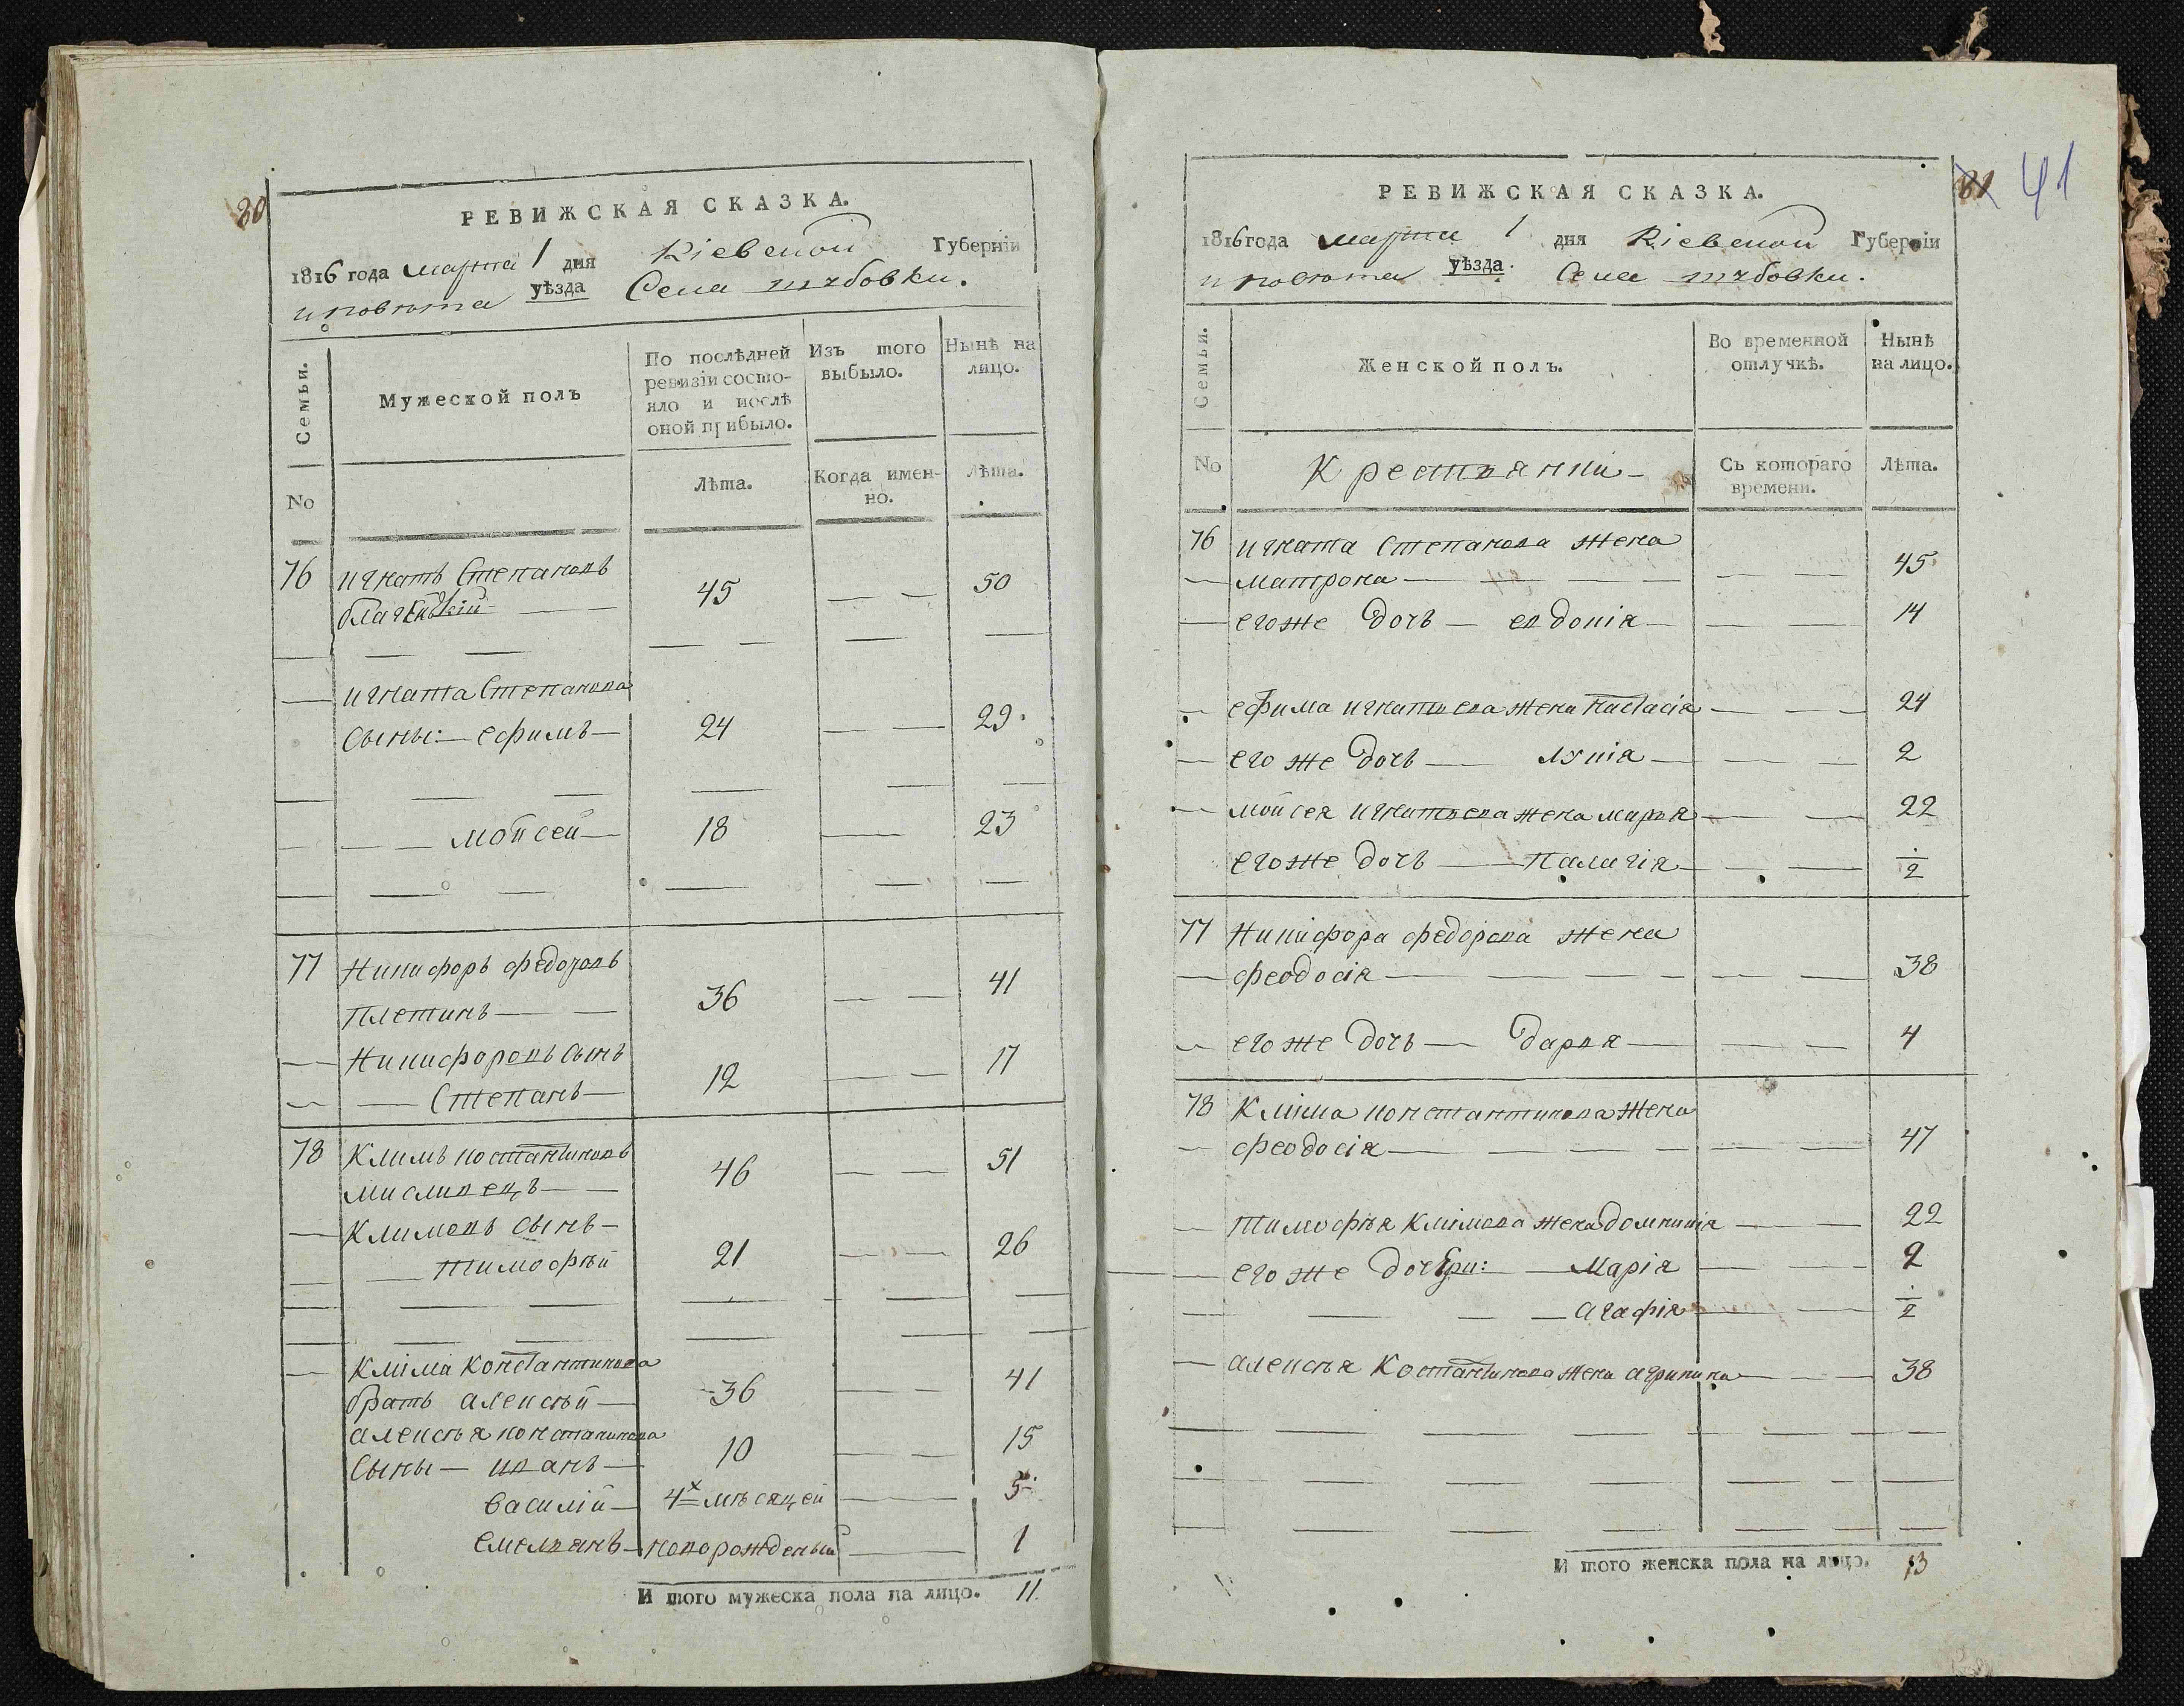 80
РЕВИЖСКАЯ СКАЗКА.
1816 года марта 1 дня Кіевской Губерніи
и повѣта уѣзда Села
Семьи.
Мужеской полъ
По послѣдней ревизіи состояло и послѣ оной прибыло.
Изъ того выбыло.
Нынѣ на лицо.
No
Лѣта.
Когда именно.
Лѣта.
76 игнатъ Степановъ
45 50
игната Степанова
Сыны: ефимъ 24 29
мойсей 18 23
77 Никифоръ федоровъ
Плетинъ 36 41
Никифоровъ Сынъ
Степанъ 12 17
78 Климъ костантиновъ
мисливецъ 46 51
Климовъ Сынъ
тимофѣй 21 26
Кліма Константинова
братъ алексѣй 36 41
алексѣя константинова
Сыны иванъ 10 15
василій 4х мѣсяцей 5
емельянъ новорожденый 1
И того мужеска пола на лицо. 11.
81 41
РЕВИЖСКАЯ СКАЗКА.
1816 года марта 1 дня Кіевской Губерніи
и повѣта уѣзда. Села
Семьи.
Женской полъ.
Во временной отлучкѣ.
Нынѣ на лицо.
No
Крестьянки
Съ котораго времени.
Лѣта.
76 игната Степанова жена
матрона 45
егоже дочь евдокія 14
ефима игнатьева жена Настасія 24
его же дочь 2
мойсея игнатьева жена марья 22
егоже дочь Палагія 1/2
77 Никифора федорова жена
феодосія 38
его же дочь дарья 4
78 Кліма константинова жена
феодосія 47
тимофѣя Клімова жена домникія 22
его же дочери: Марія 2
агафія 1/2
алексѣя Костантинова жена агрипина 38
И того женска пола на лицо. 13